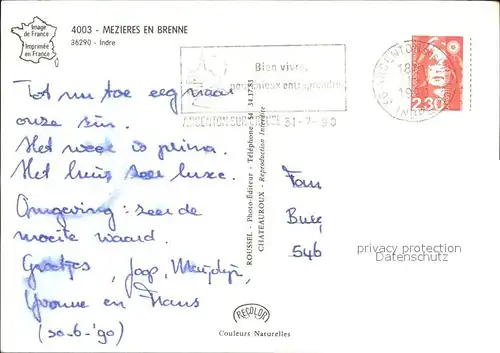 Image
de France
Imprimée
en France
4003 - MEZIERES EN BRENNE
36290 - Indre
Bien vivre,
pour mieux entreprendre
ARGENTON SUR CREUSE 31-7-90
36 ARGENTON
18
19
INDRE
2,30
Tot nu toe eeg naar
onze zin.
Het weer is prima.
Het huis zeer luxe.
Omgeving: zeer de
moeite waard.
Groetjes, Joop, Marjolijn,
Yvonne en Frans
(30-6-'90)
ROUSSEL - Photo-Éditeur - Téléphone 54 34 17 83
CHATEAUROUX - Reproduction Interdite
Fam
Burg
546
privacy protection
Datenschutz
RECOLOR
Couleurs Naturelles